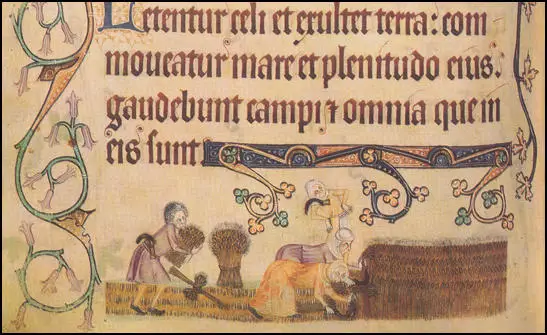 Letentur celi et exultet terra: com
moueatur mare et plenitudo eius.
gaudebunt campi ⁊ omnia que in
eis sunt